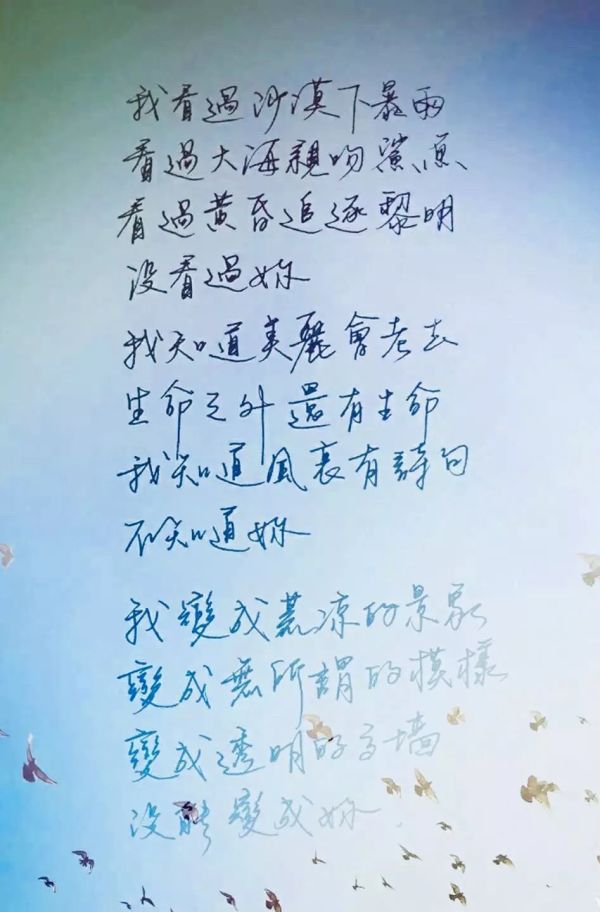 我看過沙漠下暴雨
看過大海親吻鯊魚
看過黃昏追逐黎明
没看過妳
我知道美麗會老去
生命之外還有生命
我知道風裏有詩句
不知道妳
我變成荒凉的景象
變成無所謂的模樣
變成透明的高墙
没能變成妳